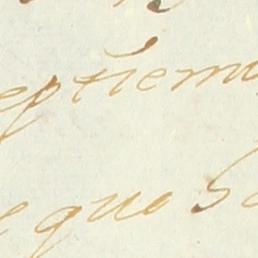 eptiem
e que so